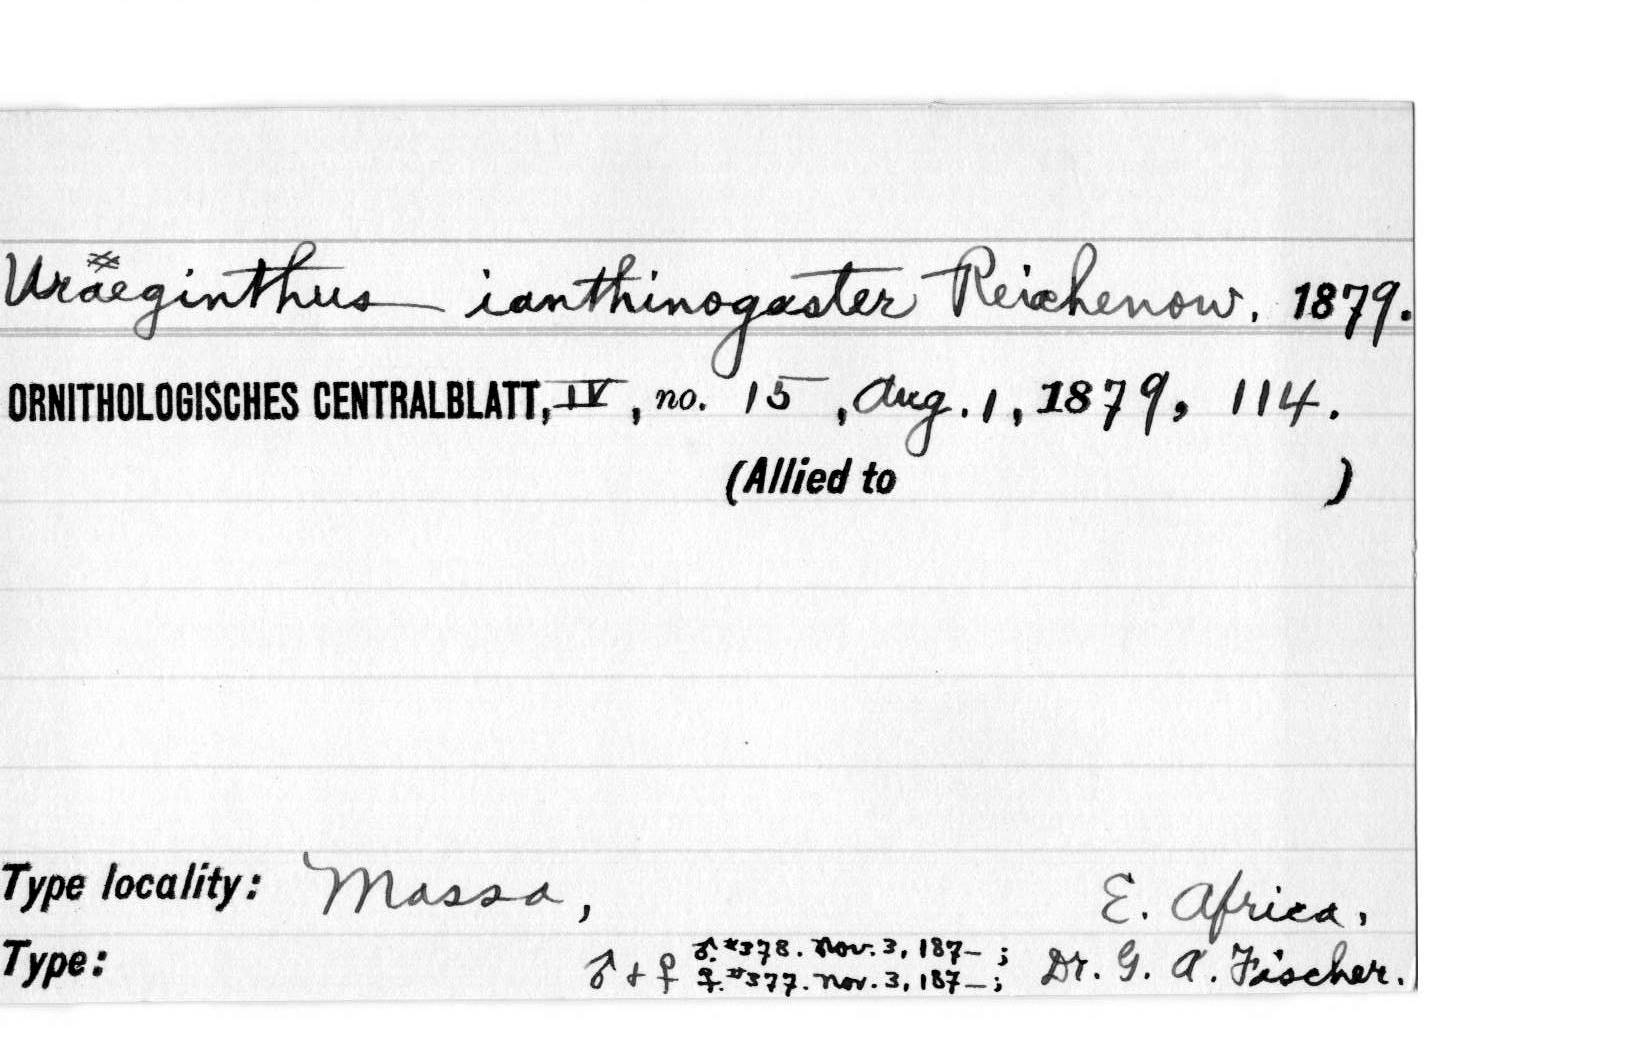 Uraeginthus ianthinogaster Reichenow. 1879.
ORNITHOLOGISCHES CENTRALBLATT, IV, no. 15, Aug. 1, 1879, 114.
(Allied to )
Type locality: Massa, E. Africa.
Type: ♂ + ♀ ♂.#378. Nov. 3, 187–; Dr. G. A. Fischer.
♀.#377. Nov. 3, 187–;